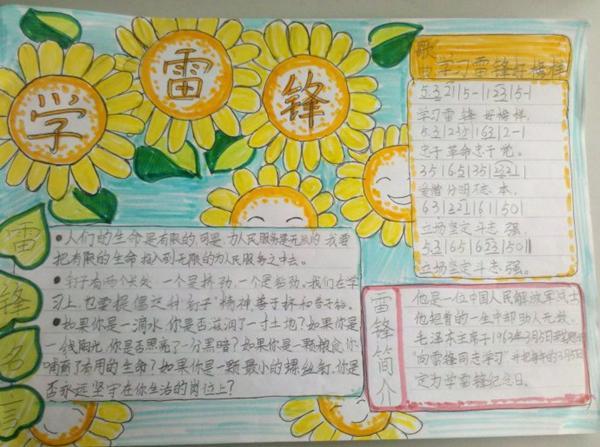 学
雷
锋
歌
曲 学习雷锋好榜样
学习雷锋 好榜样,
忠于革命忠于党。
爱憎分明不忘本,
立场坚定斗志强。
立场坚定斗志强。
雷锋名言
●人们的生命是有限的,可是,为人民服务是无限的,我要
把有限的生命,投入到无限的为人民服务之中去。
●钉子有两个长处:一个是挤劲,一个是钻劲。我们在学
习上,也要提倡这种"钉子"精神,善于挤和善于钻。
●如果你是一滴水,你是否滋润了一寸土地?如果你是
一线阳光,你是否照亮了一分黑暗?如果你是一颗粮食,你
哺育了有用的生命?如果你是一颗最小的螺丝钉,你是
否永远坚守在你生活的岗位上?
雷锋简介
他是一位中国人民解放军战士,
他短暂的一生中却助人无数。
毛泽东主席于1963年3月5日
"向雷锋同志学习"并把每年的3月5日
定为学雷锋纪念日。